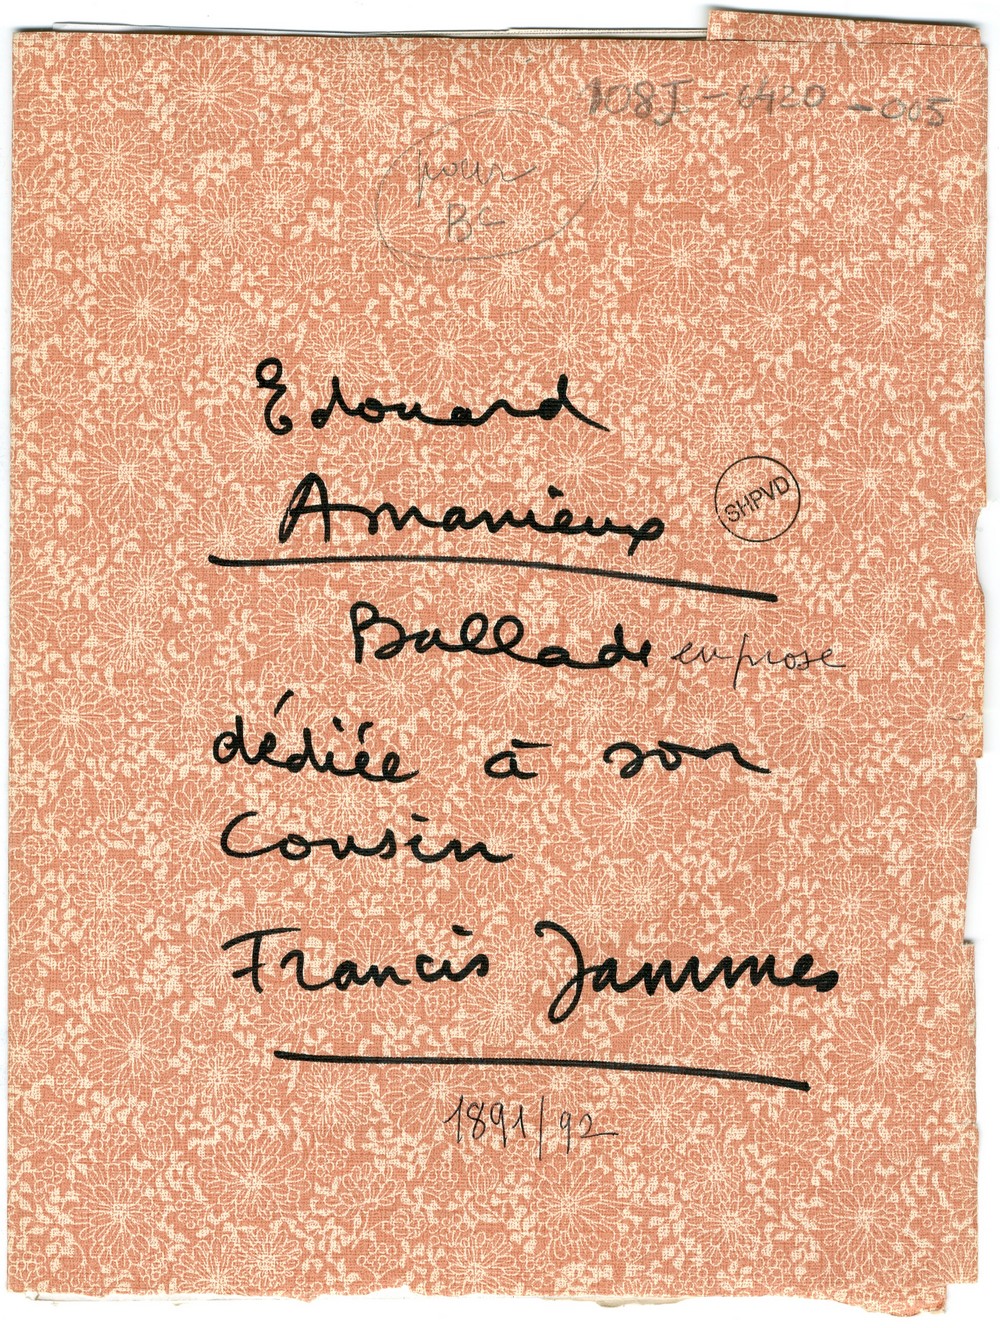 108J-6420-005
pour
BC
Edouard
Amanieux
SHPVD
Ballade en prose
dédiée à son
Cousin
Francis Jammes
1891/92